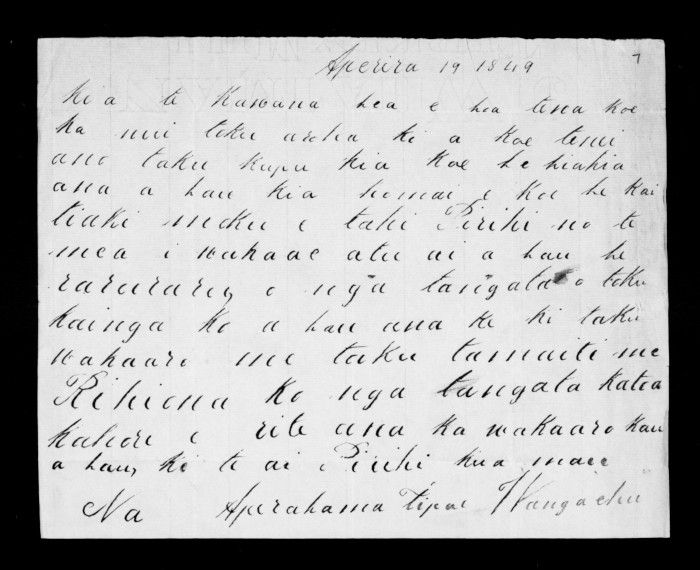 Aperira 19 1849
7
ki a te Kawana hea e hoa tena koe
ka nui toku aroha ki a koe tenei
ano taku kupu kia koe he hiahia
ana a hau kia homai e koe he kai
tiaki moku e tahi Pirihi no te
mea i wakaae atu ai a hau he
raruraru o nga tangata o toku
kainga ko a hau ana ke ki taku
wakaaro me taku tamaiti me
Rihiona ko nga tangata katoa
kahore e rite ana ka wakaaro kau
a hau ki te ai Pirihi kua mau
Na Aperahama Tipae Wangaehu